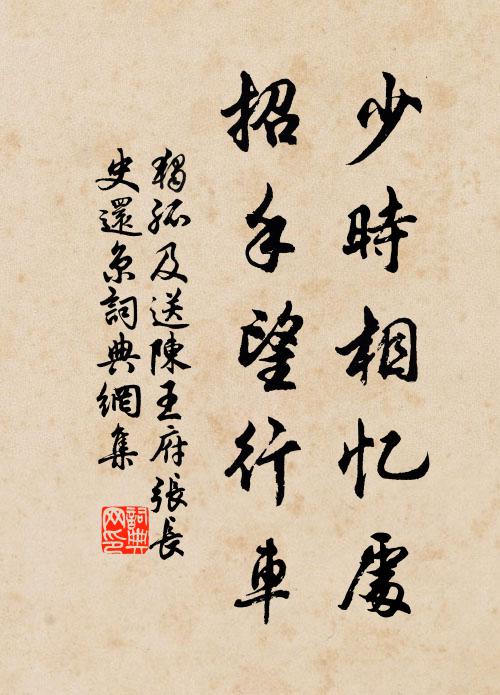 少時相忆處
招手望行車
獨孤及送陳王府張長
史還京詞典網集
詞典
网印